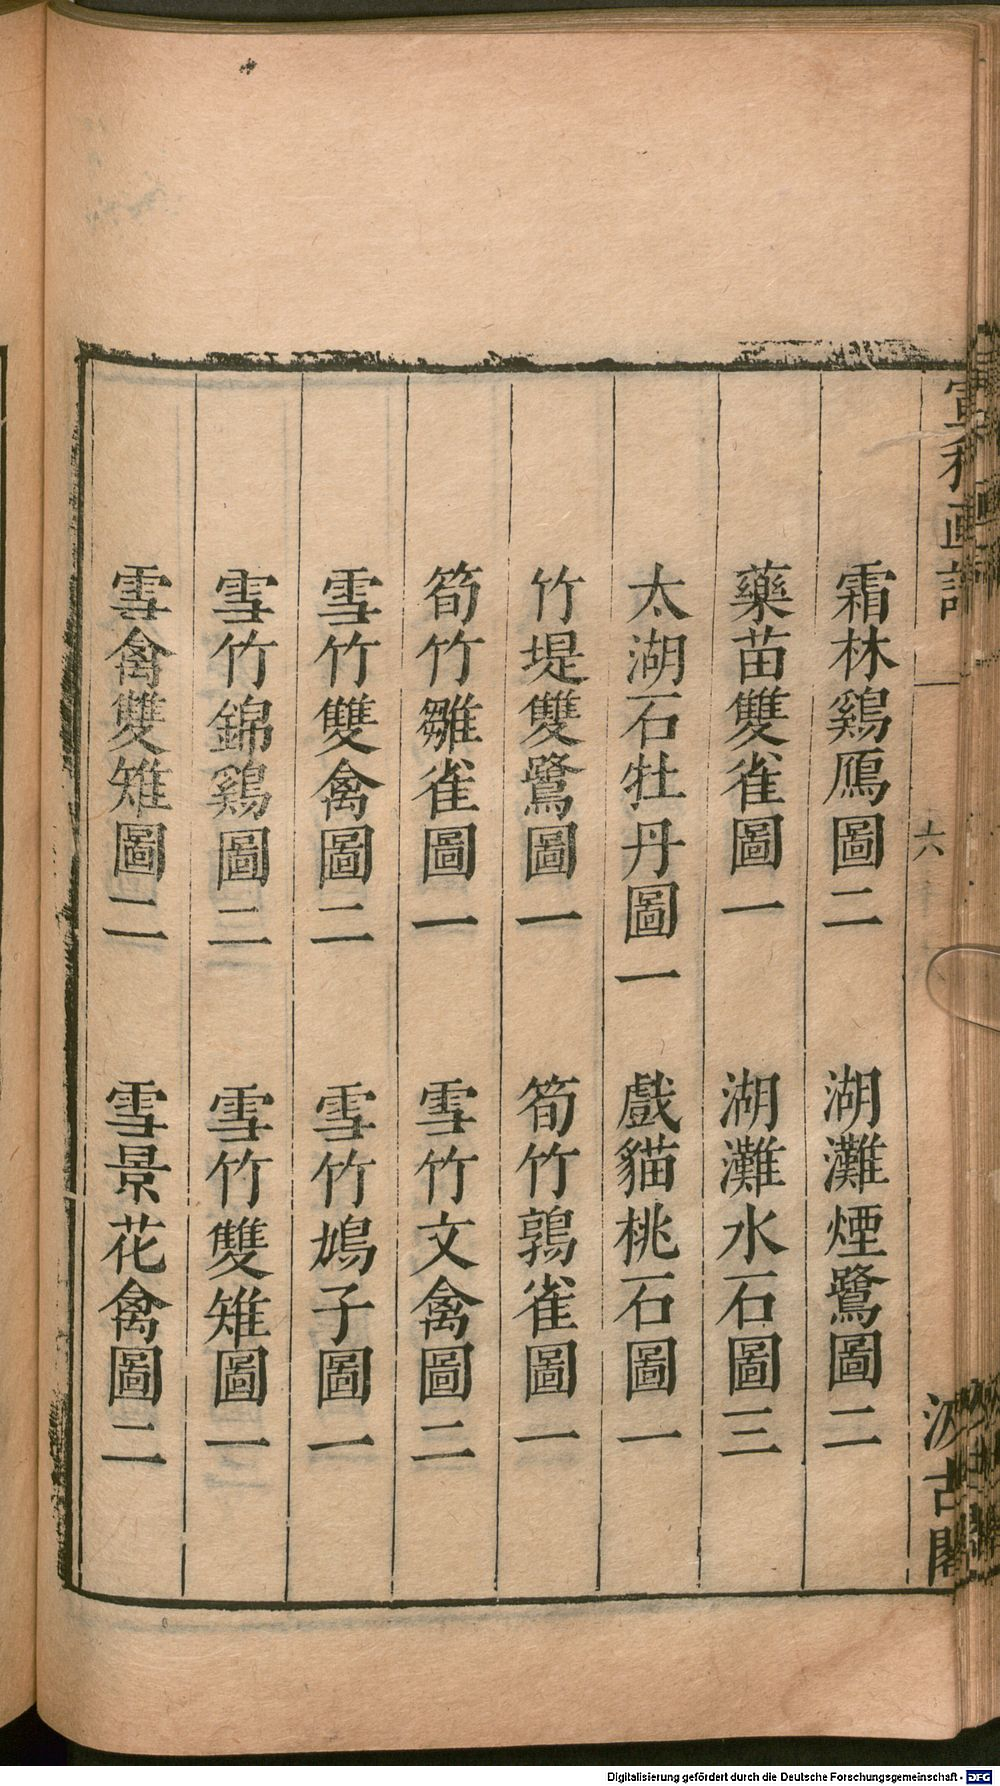 霜林鷄鴈圖二　湖灘煙鷺圖二
藥苗雙雀圖一　湖灘水石圖三
太湖石牡丹圖一　戲貓桃石圖一
竹堤雙鷺圖一　筍竹鶉雀圖一
筍竹雛雀圖一　雪竹文禽圖二
雪竹雙禽圖二　雪竹鳩子圖一
雪竹錦鷄圖二　雪竹雙雉圖一
雪禽雙雉圖二　雪景花禽圖二
六
古閣
Digitalisierung gefördert durch die Deutsche Forschungsgemeinschaft - DFG